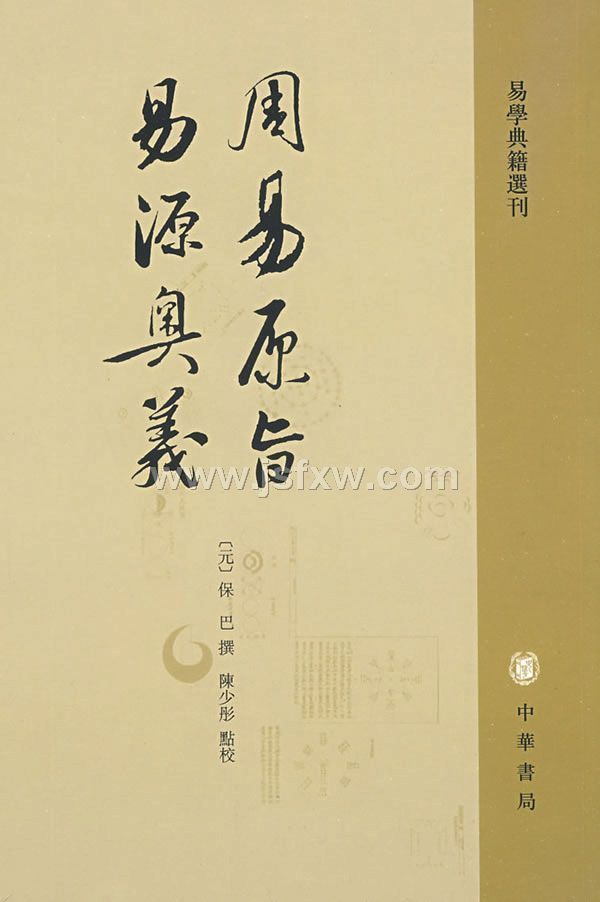 易學典籍選刊
周易原旨
易源奧義
〔元〕保 巴 撰 陳少彤 點校
中華書局
www.jsfxw.com